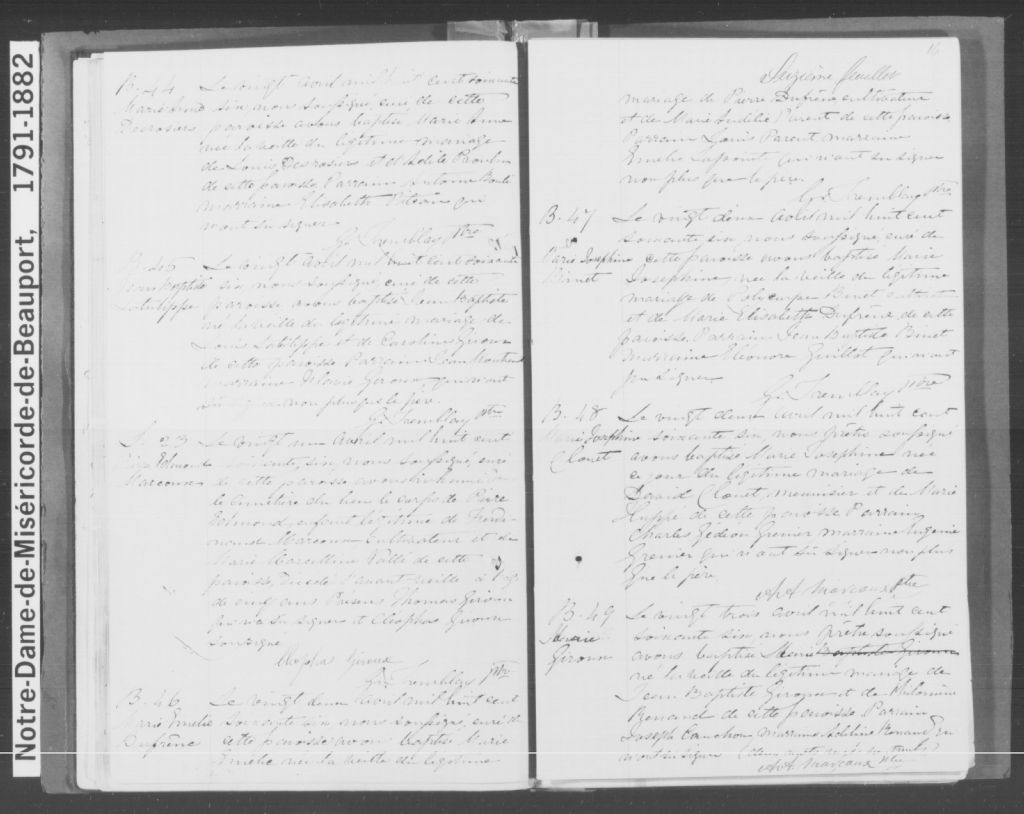 Notre-Dame-de-Miséricorde-de-Beauport, 1791-1882
B. 44
Marie Anne
Desrosiers
Le vingt avril mil huit cent soixante
six, nous soussigné, curé de cette
paroisse avons baptisé Marie Anne
née la veille du légitime mariage
de Louis Desrosiers et d'Adèle
de cette paroisse. Parrain Antoine
marraine Elisabeth qui
n'ont su signer.
G. Tremblay Ptre
B. 45
Jean Baptiste
Latulippe
Le vingt avril mil huit cent soixante
six, nous soussigné, curé de cette
paroisse avons baptisé Jean Baptiste
né la veille du légitime mariage de
Louis Latulippe et de Caroline Giroux
de cette paroisse Parrain Jean
marraine Giroux, qui n'ont
su signer non plus que le père.
G. Tremblay Ptre
S.
Edmond
Marcoux
Le vingt un avril mil huit cent
soixante, six, nous soussigné, curé
de cette paroisse avons inhumé dans
le cimetière du lieu le corps de Pierre
Edmond, enfant légitime de Ferdi-
nand Marcoux Cultivateur et de
Marie Vallée de cette
paroisse, décédé l'avant veille à l'âge
de cinq ans Présens Thomas Giroux
qui n'a su signer et Cléophas Giroux
soussigné
Cléophas Giroux
G. Tremblay Ptre
B. 46
Marie Emelie
Dufrêne
Le vingt deux avril mil huit cent
soixante six nous soussigné, curé de
cette paroisse avons baptisé Marie
Emelie née la veille du légitime
16
Seizième feuillet
mariage de Pierre Dufrêne cultivateur
et de Marie Parent de cette paroisse
Parrain Louis Parent marraine
Emelie qui n'ont su signer
non plus que le père.
G. Tremblay Ptre
B. 47
Marie Josephine
Binet
Le vingt deux avril mil huit cent
soixante six, nous soussigné, curé de
cette paroisse avons baptisé Marie
Josephine, née la veille du légitime
mariage de Policarpe Binet cultivateur
et de Marie Elisabeth Dufrêne de cette
paroisse, Parrain Jean Baptiste Binet
marraine Eléonore Guillot qui n'ont
su signer
G. Tremblay Ptre
B. 48
Marie Josephine
Clouet
Le vingt deux avril mil huit cent
soixante six, nous Prêtre soussigné
avons baptisé Marie Josephine née
ce jour du légitime mariage de
David Clouet, meunier et de Marie
Huppé de cette paroisse Parrain
Charles Gédéon Grenier marraine Eugenie
Grenier qui n'ont su signer non plus
que le père
Marcoux Ptre
B. 49
Marie
Giroux
Le vingt trois avril mil huit cent
soixante six nous prêtre soussigné
avons baptisé Baptiste Giroux
né la veille du légitime mariage de
Jean Baptiste Giroux et de Philomène
Renaud de cette paroisse Parrain
Joseph Cauchon Marraine Adeline Renaud qui
n'ont su signer
Marcoux Ptre